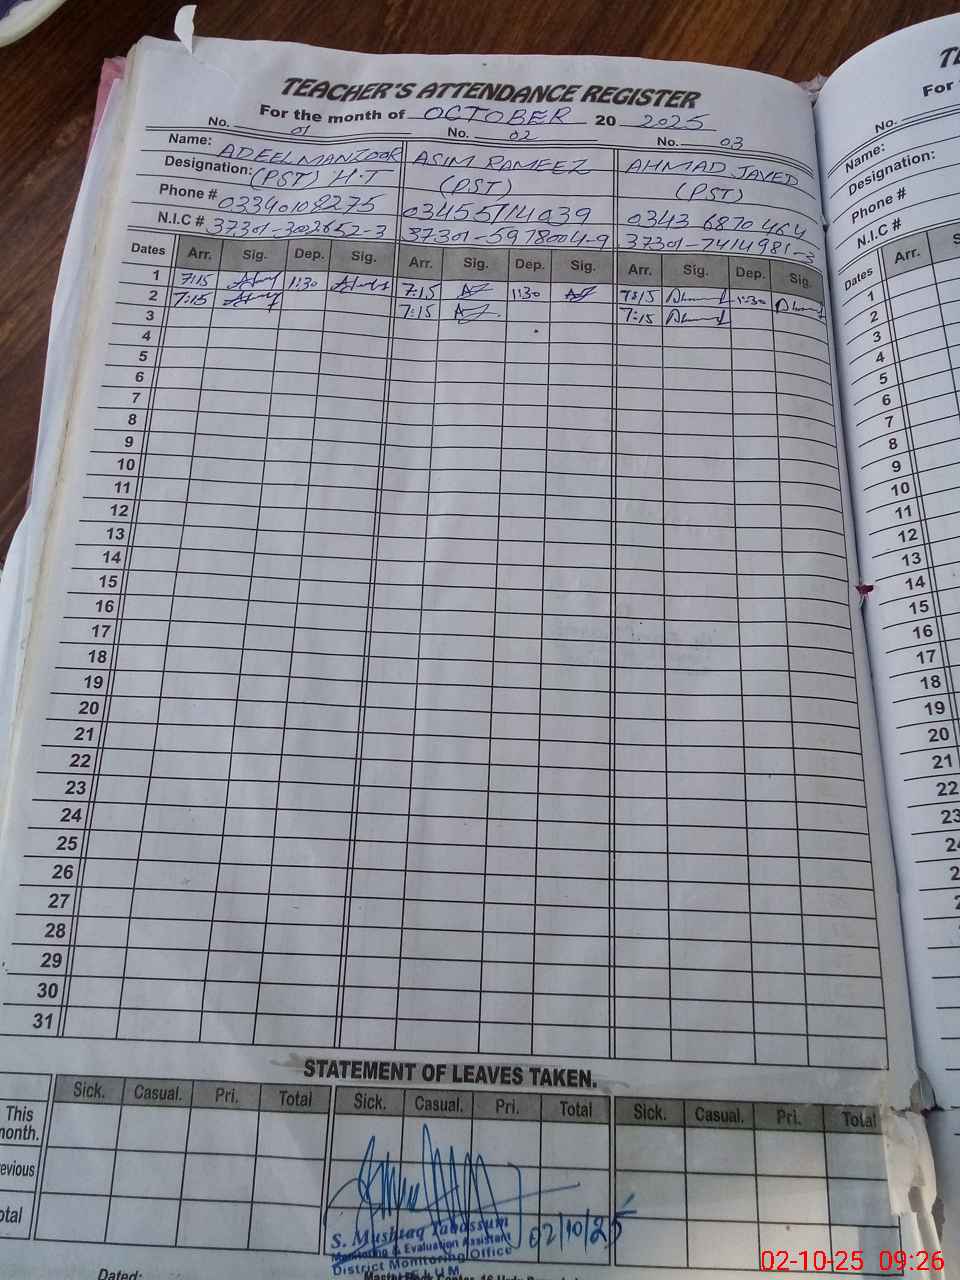 TEACHER'S ATTENDANCE REGISTER
For the month of OCTOBER 20 2025
No. 01 No. 02 No. 03
Name: ADEEL MANZOOR ASIM RAMEEZ AHMAD JAVED
Designation: (PST) H.T (PST) (PST)
Phone # 03340108275 03455714039 0343 6870464
N.I.C # 37301-3002652-3 37301-5978004-9 37301-7414981-3
Dates Arr. Sig. Dep. Sig. Arr. Sig. Dep. Sig. Arr. Sig. Dep. Sig.
1 7:15 1:30 7:15 1:30 7:15 1:30
2 7:15 7:15 7:15
3
4
5
6
7
8
9
10
11
12
13
14
15
16
17
18
19
20
21
22
23
24
25
26
27
28
29
30
31
STATEMENT OF LEAVES TAKEN.
Sick. Casual. Pri. Total Sick. Casual. Pri. Total Sick. Casual. Pri. Total
This
month.
evious
otal
02/10/25
S. Mushtaq Tabassum
Monitoring & Evaluation Assistant
District Monitoring Office
Dated:
For
No.
Name:
Designation:
Phone #
N.I.C #
Dates Arr.
1
2
3
4
5
6
7
8
9
10
11
12
13
14
15
16
17
18
19
20
21
22
23
02-10-25 09:26